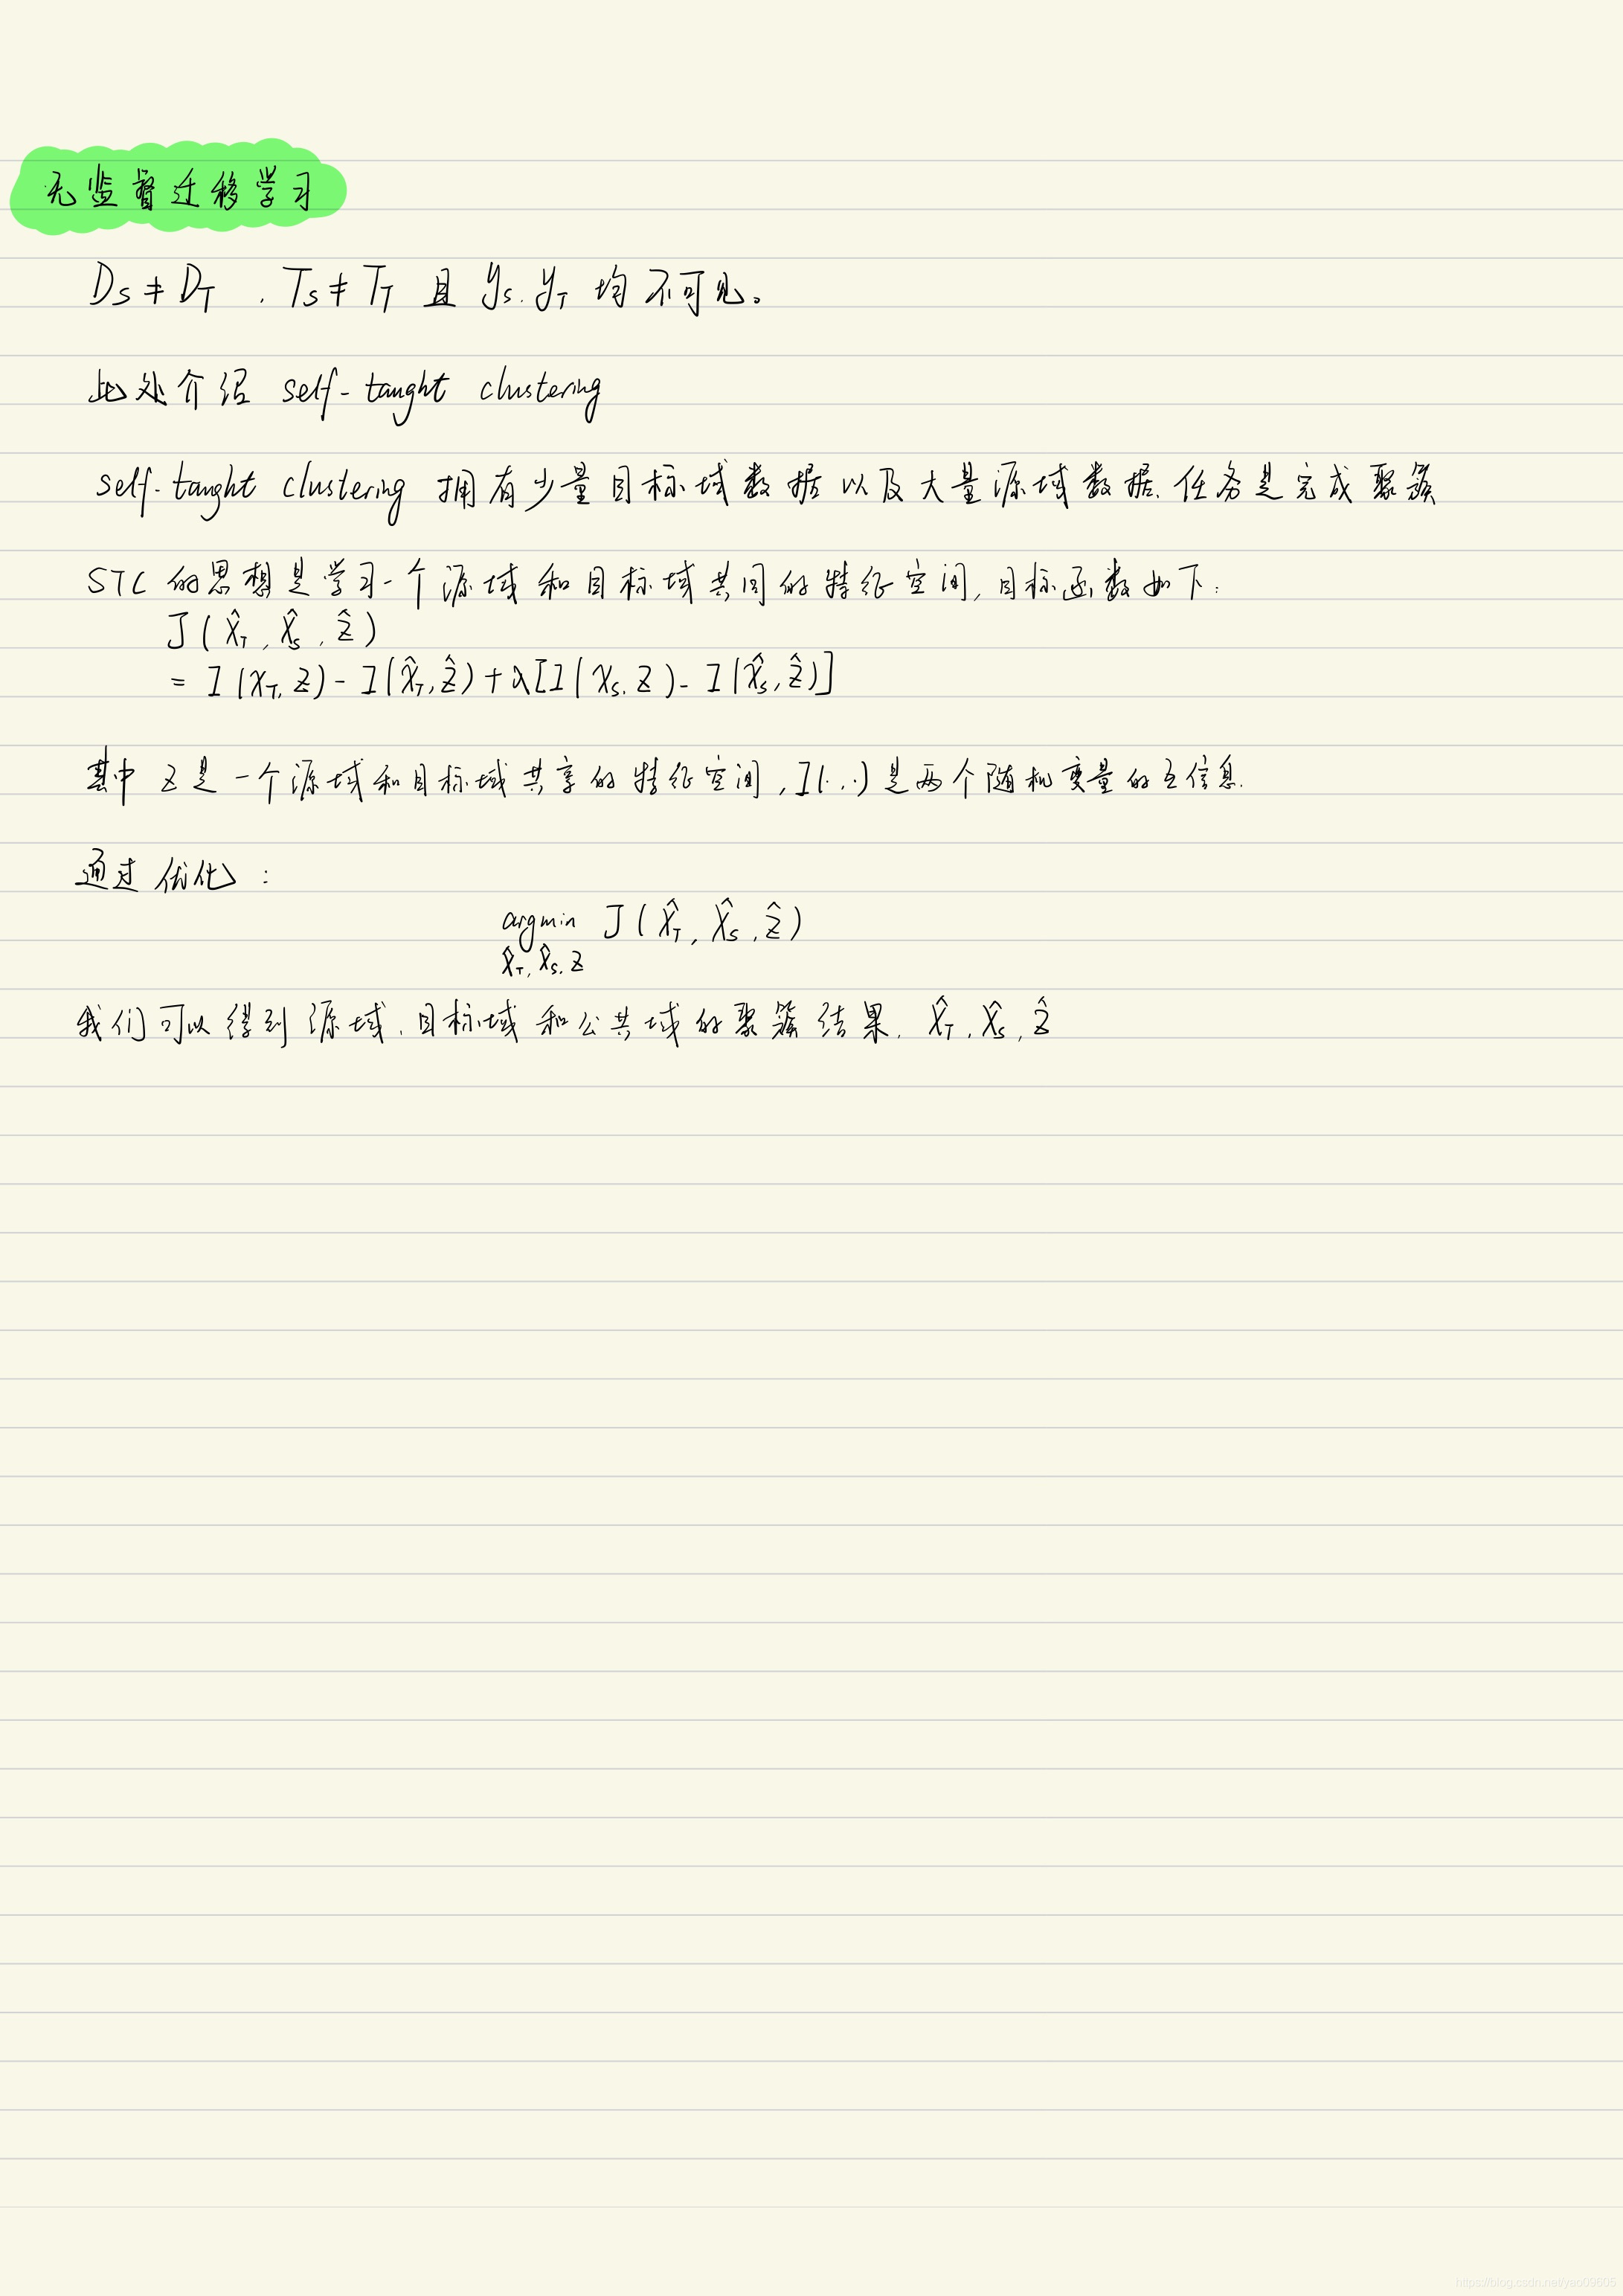 无监督迁移学习
D_S ≠ D_T , T_S ≠ T_T 且 y_S, y_T 均不可见。
此处介绍 self-taught clustering
self-taught clustering 拥有少量目标域数据以及大量源域数据,任务是完成聚簇
STC 的思想是学习一个源域和目标域共同的特征空间,目标函数如下:
J(X̂_T, X̂_S, Ẑ)
= I(X_T, Z) - I(X̂_T, Ẑ) + λ[I(X_S, Z) - I(X̂_S, Ẑ)]
其中 Z 是一个源域和目标域共享的特征空间, I(·,·) 是两个随机变量的互信息.
通过优化:
argmin J(X̂_T, X̂_S, Ẑ)
X̂_T, X̂_S, Z
我们可以得到源域、目标域和公共域的聚簇结果. X̂_T, X̂_S, Ẑ
https://blog.csdn.net/yao09605